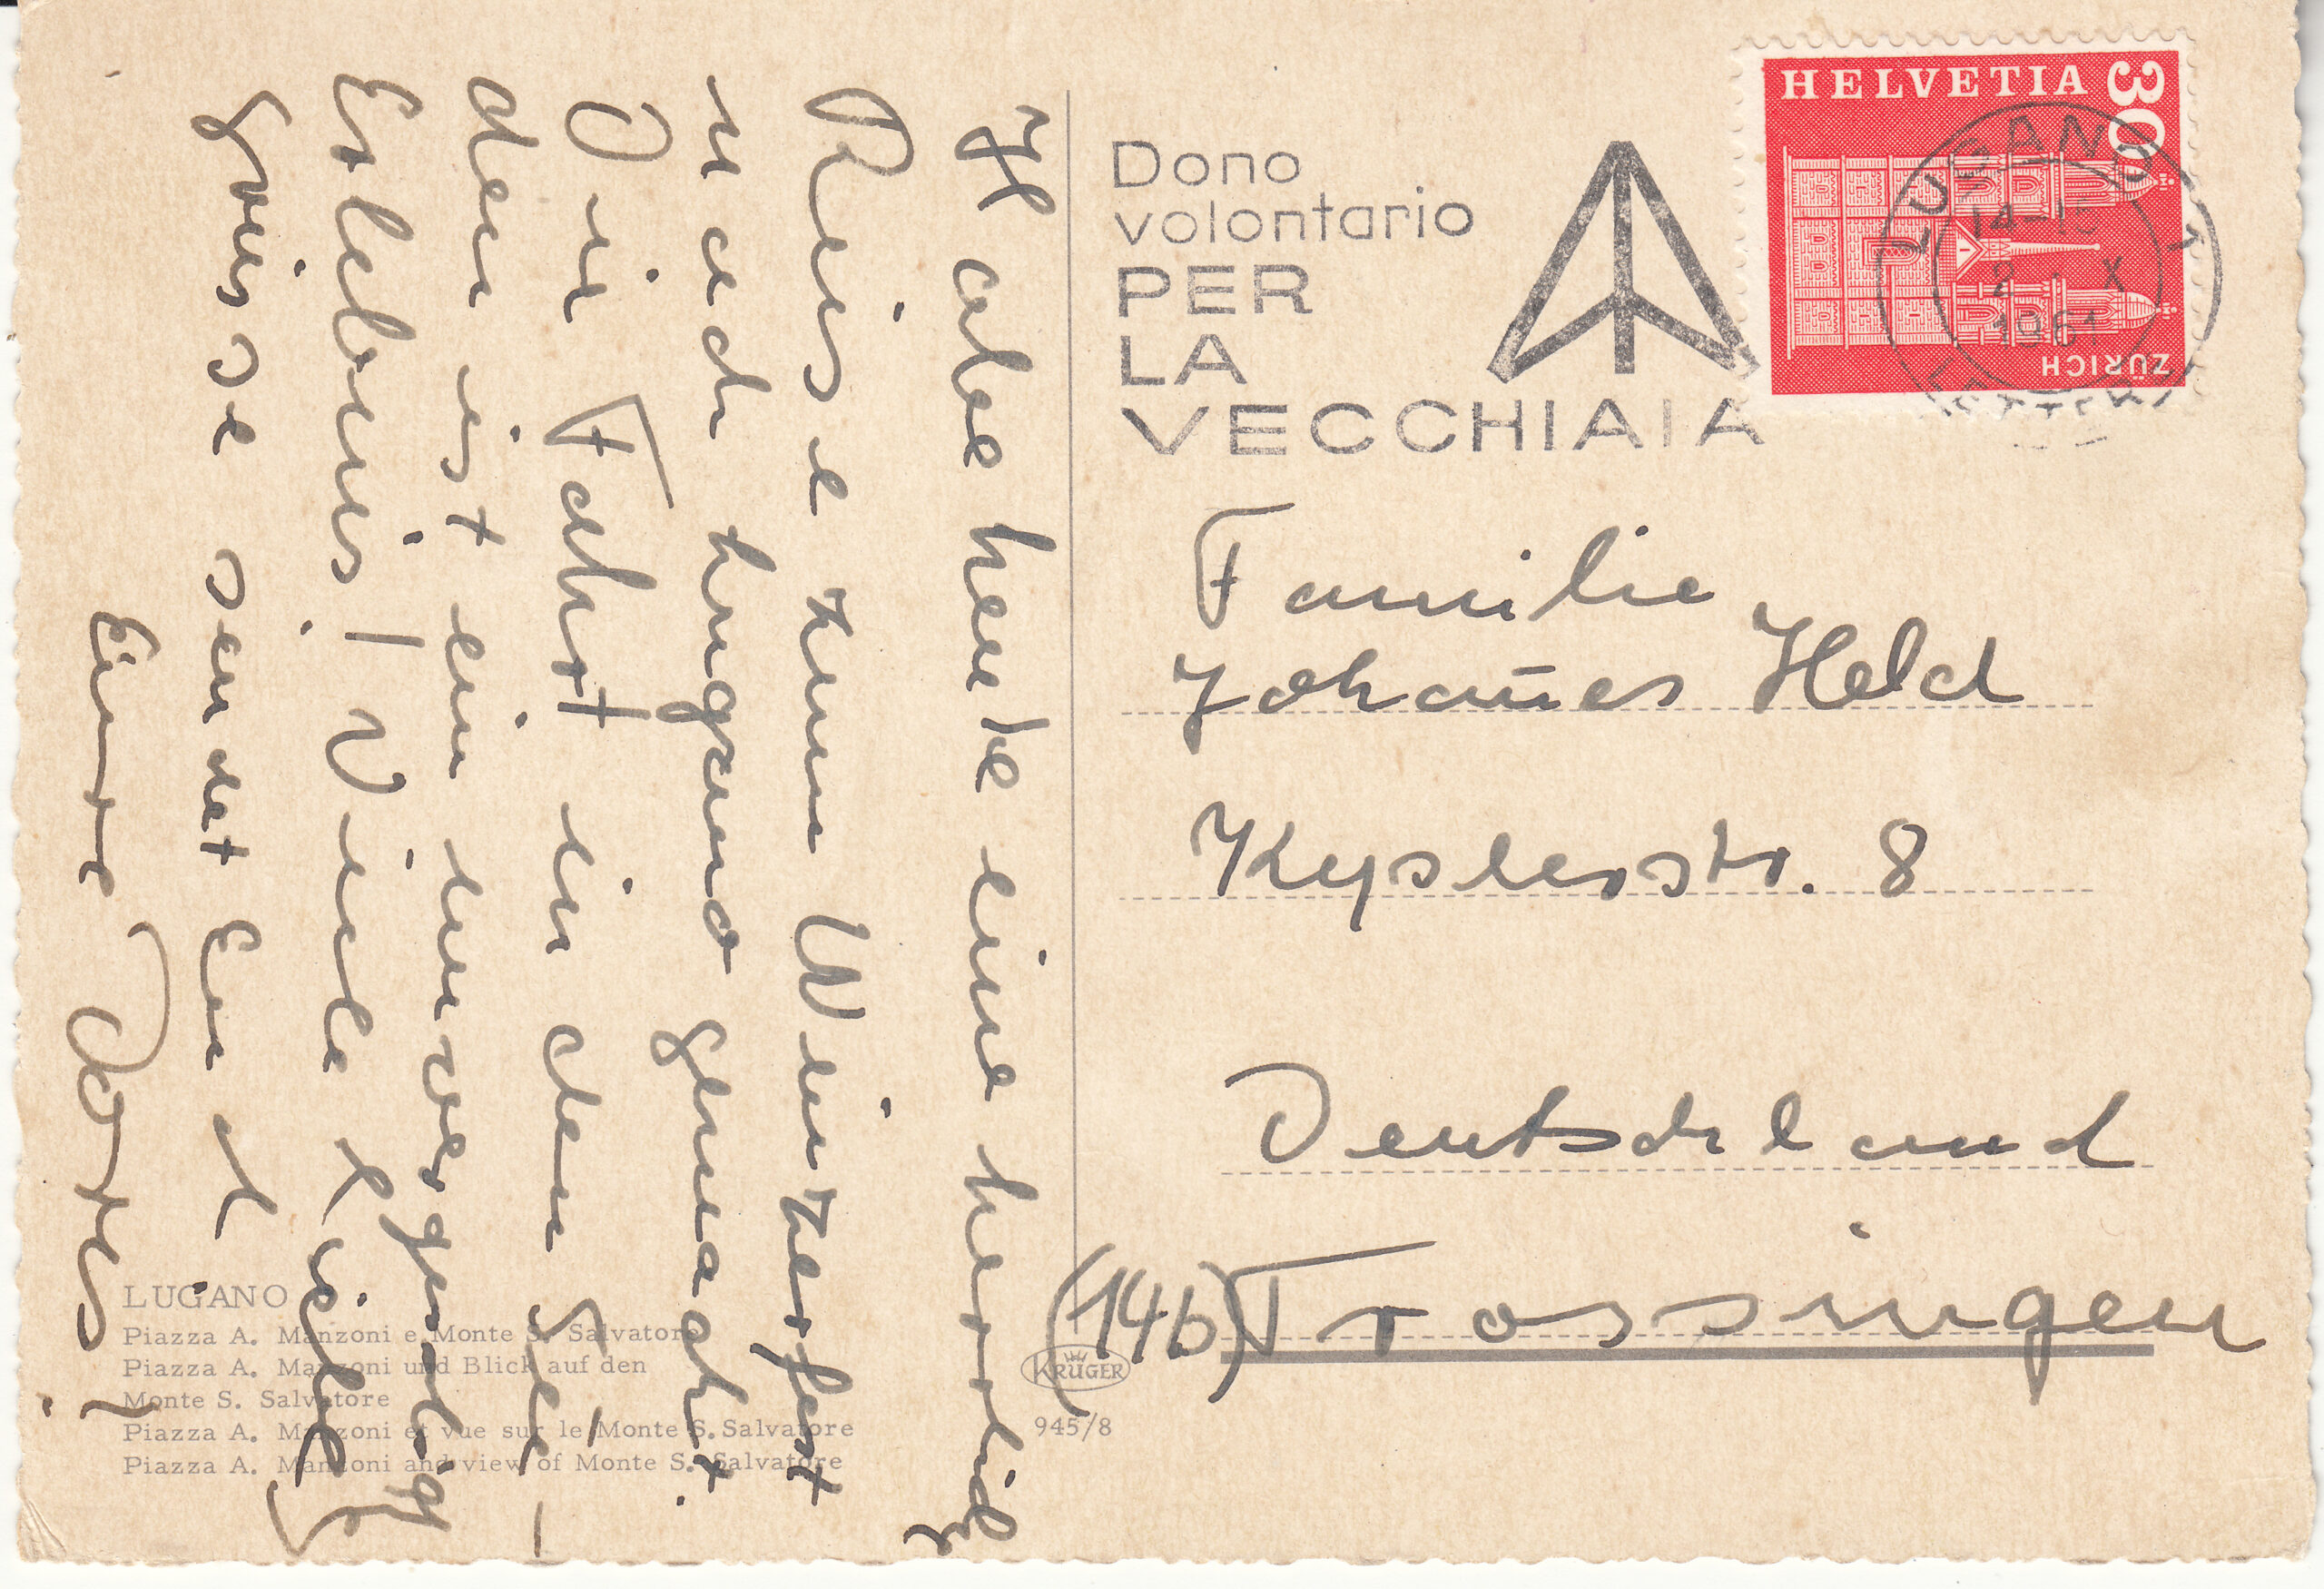 HELVETIA 30
ZÜRICH
LUGANO 1
14-15
2 X
1961
LETTERE
Dono
volontario
PER
LA
VECCHIAIA
Familie
Johannes Held
8
Deutschland
(14b) Trossingen
Habe heute eine herrliche
Reise zum Winzerfest
nach Lugano gemacht.
Die Fahrt in den Sü-
den ist ein
Erlebnis! Viele liebe
Grüsse sendet Euch
Eure
LUGANO
Piazza A. Manzoni e Monte S. Salvatore
Piazza A. Manzoni und Blick auf den
Monte S. Salvatore
Piazza A. Manzoni et vue sur le Monte S. Salvatore
Piazza A. Manzoni and view of Monte S. Salvatore
KRÜGER
945/8